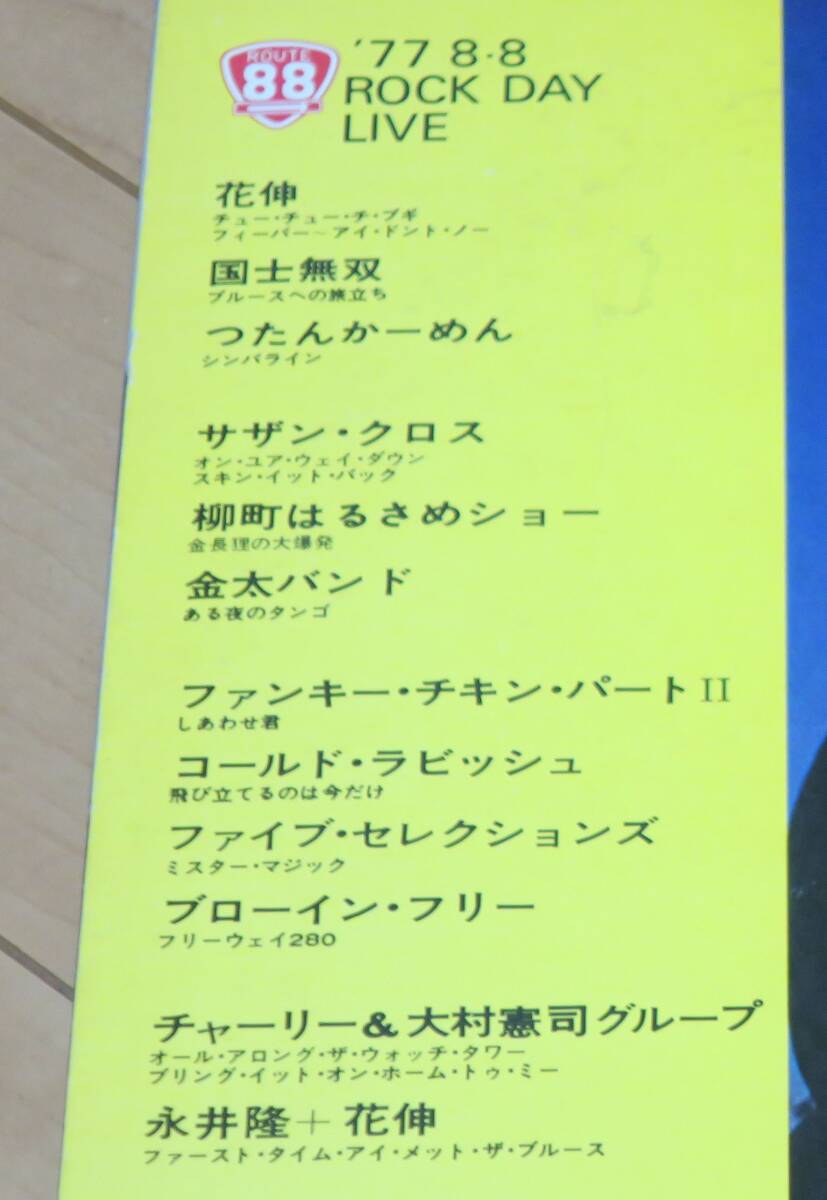 ROUTE
88
'77 8·8
ROCK DAY
LIVE
花伸
チュー・チュー・チ・ブギ
フィーバー～アイ・ドント・ノー
国士無双
ブルースへの旅立ち
つたんかーめん
シンバライン
サザン・クロス
オン・ユア・ウェイ・ダウン
スキン・イット・バック
柳町はるさめショー
金長理の大爆発
金太バンド
ある夜のタンゴ
ファンキー・チキン・パートII
しあわせ君
コールド・ラビッシュ
飛び立てるのは今だけ
ファイブ・セレクションズ
ミスター・マジック
ブローイン・フリー
フリーウェイ280
チャーリー&大村憲司グループ
オール・アロング・ザ・ウォッチ・タワー
ブリング・イット・オン・ホーム・トゥ・ミー
永井隆+花伸
ファースト・タイム・アイ・メット・ザ・ブルース